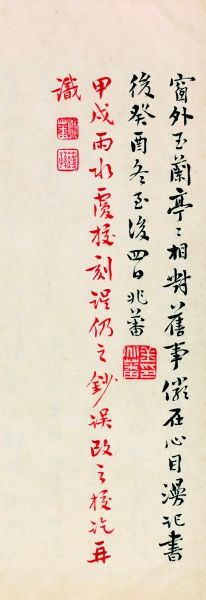 窗外玉蘭亭〻相對舊事儼在心目漫記書
後癸酉冬至後四日兆蕃
甲戌雨水覆挍刻誤仍之鈔誤改之挍訖再
識